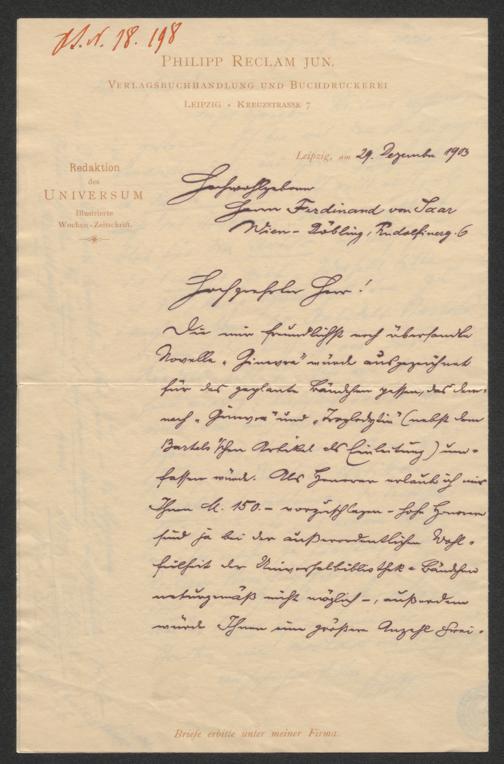 J. N. 18.198
PHILIPP RECLAM JUN.
VERLAGSBUCHHANDLUNG UND BUCHDRUCKEREI
LEIPZIG • KREUZSTRASSE 7
Leipzig, am 29. Dezember 1903
Redaktion
des
UNIVERSUM
Illustrierte
Wochen-Zeitschrift.
Hochwohlgeboren
Herrn Ferdinand von Saar
Wien-Döbling, Rudolfinerg. 6
Hochverehrter Herr!
Die mir freundlichst noch übersandte
Novelle „Ginevra" würde ausgezeichnet
für das geplante Bändchen passen, das dem-
nach „Ginevra" und „Troglodytin" (nebst dem
Bartels'schen Artikel als Einleitung) um-
fassen würde. Als Honorar erlaube ich mir
Ihnen M. 150.- vorzuschlagen - hohe Honorare
sind ja bei der außerordentlichen Wohl-
feilheit der Universalbibliothek-Bändchen
naturgemäß nicht möglich -, außerdem
würde Ihnen eine größere Anzahl Frei-
Briefe erbitte unter meiner Firma.